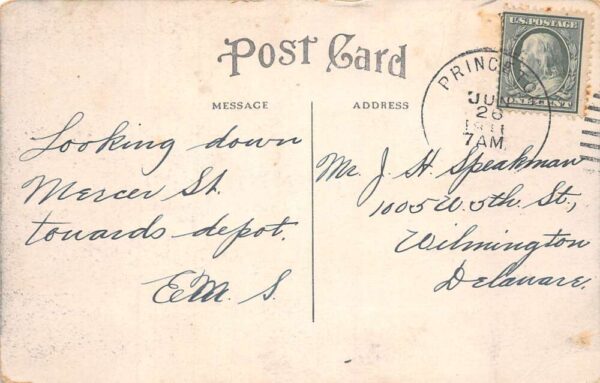 Post Card
MESSAGE
ADDRESS
U.S. POSTAGE
ONE CENT
PRINCETO
26
1911
7AM
Looking down
Mercer St.
towards depot.
E.M. S.
Mr. J. H. Speakman
1005 W. 5th. St.,
Wilmington
Delaware.